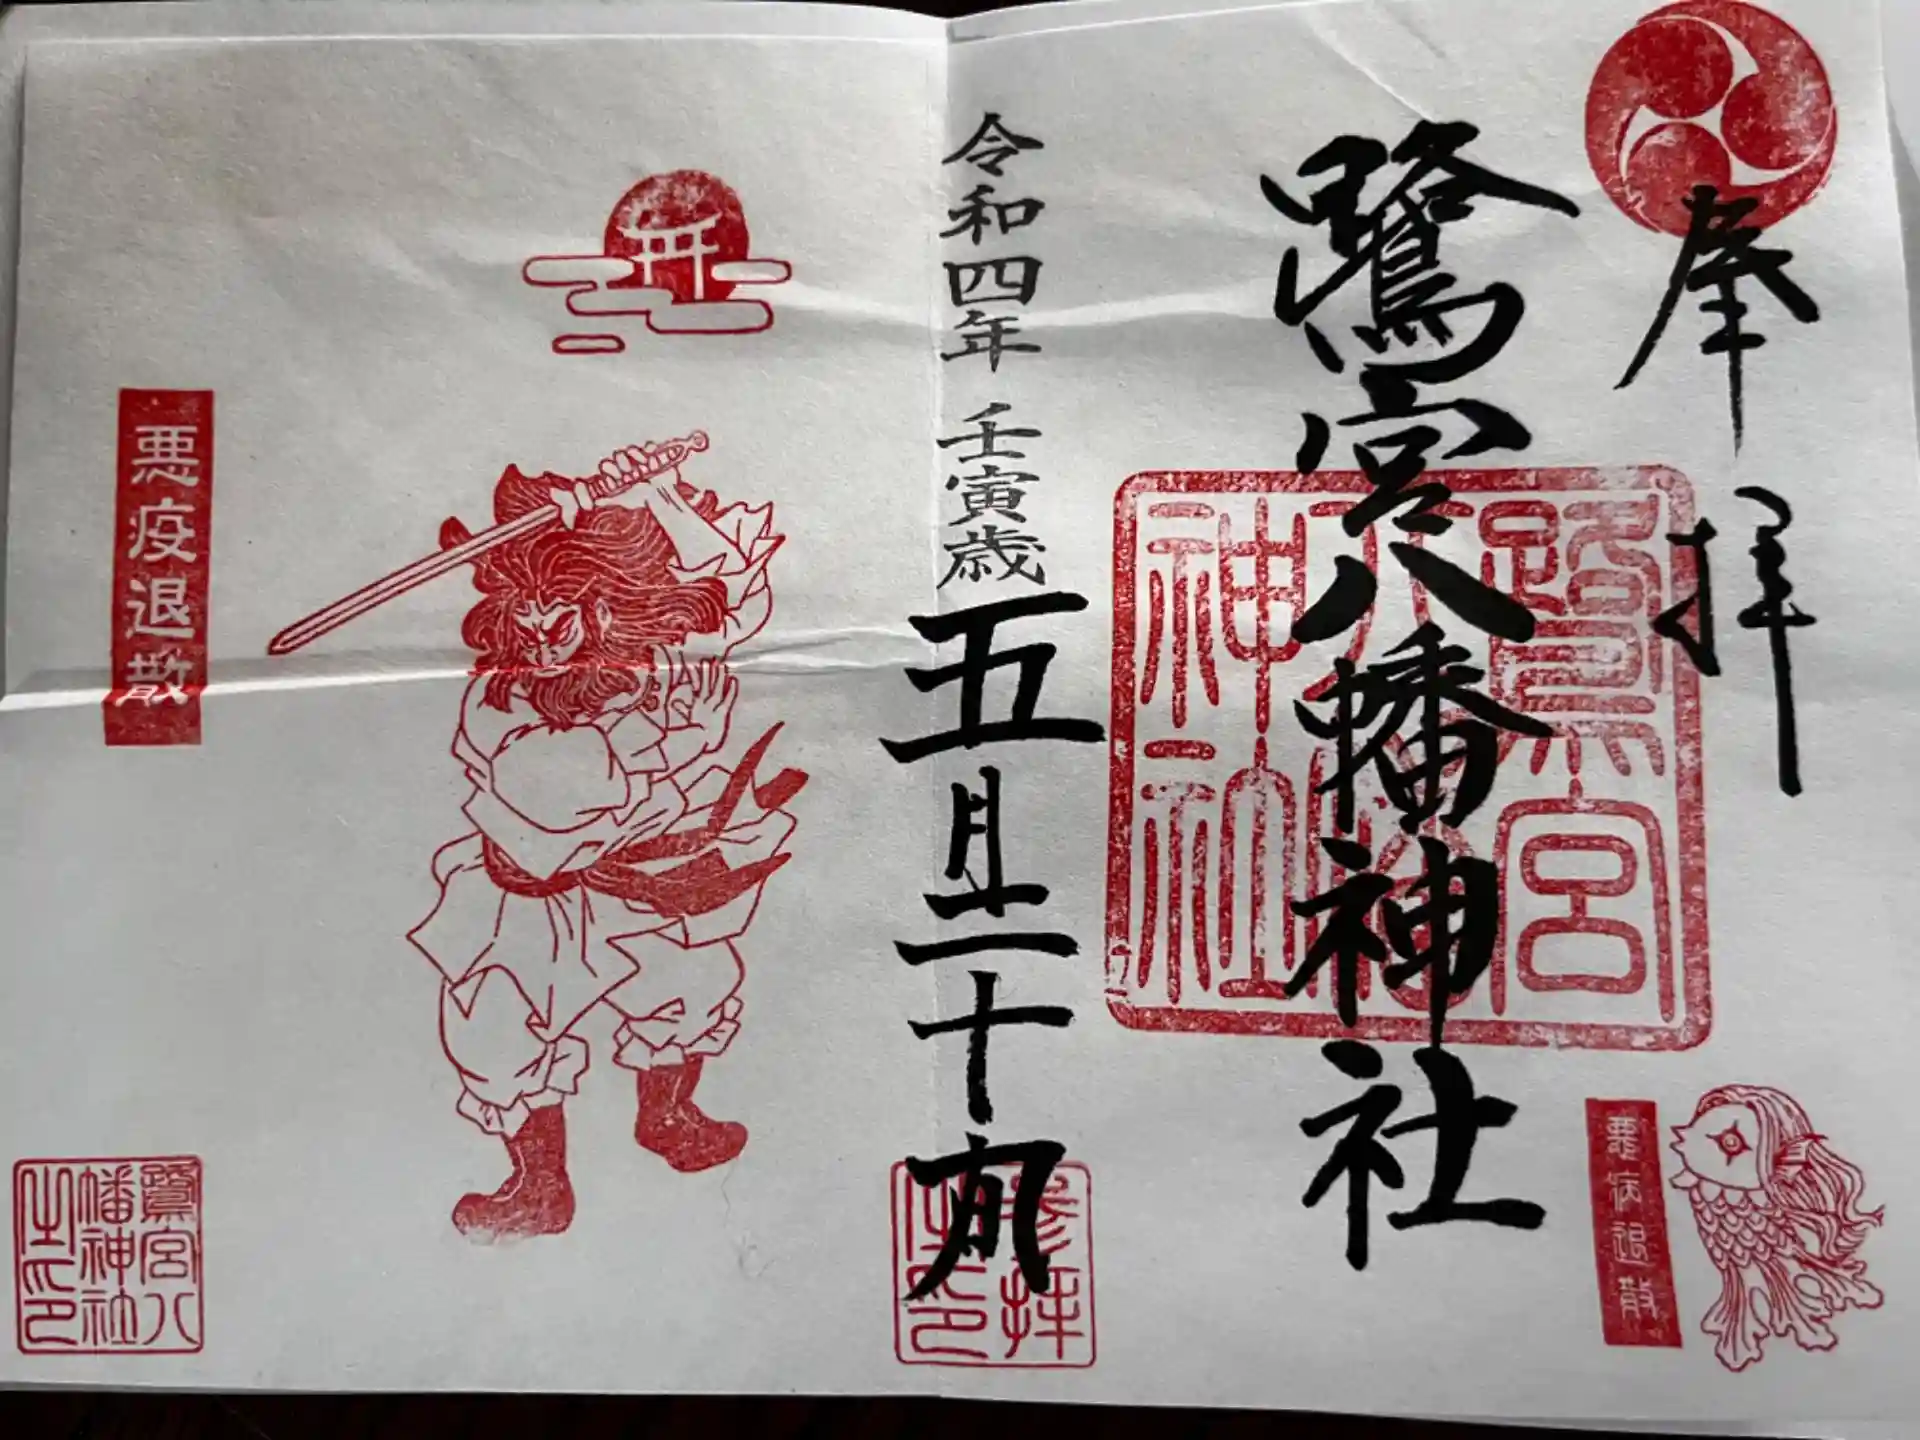 奉拝
鷺宮八幡神社
鷺宮八幡神社
悪病退散
令和四年 壬寅歳 五月二十九日
参拝之印
悪疫退散
鷺宮八
幡神社
之印